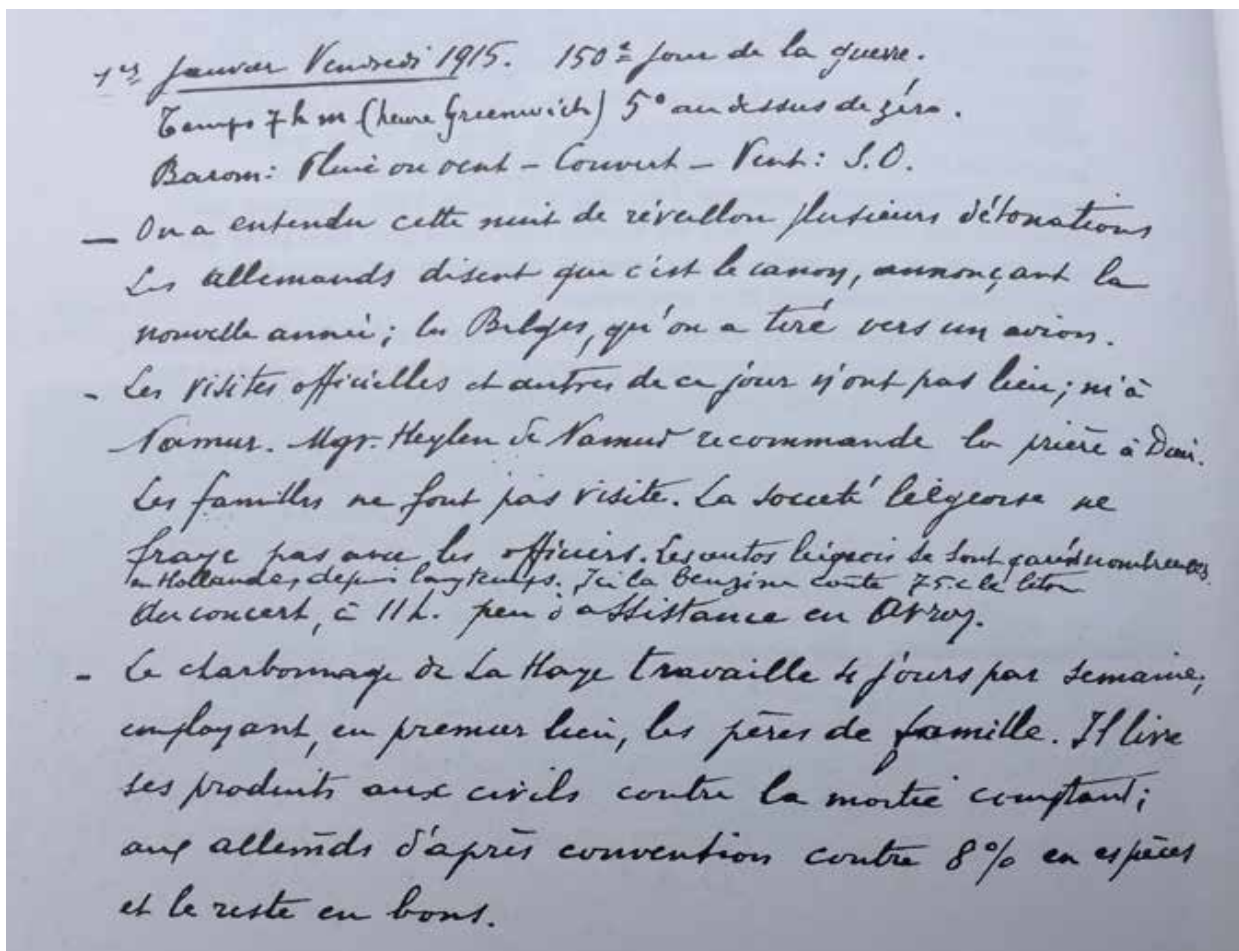 1er Janvier Vendredi 1915. 150e jour de la guerre.
Temps 7 h m (heure Greenwich) 5° au dessus de zéro.
Barom: Pluie ou vent – Couvert – Vent: S.O.
— On a entendu cette nuit de réveillon plusieurs détonations
Les allemands disent que c'est le canon, annonçant la
nouvelle année; les Belges, qu'on a tiré vers un avion.
- Les visites officielles et autres de ce jour n'ont pas lieu; ni à
Namur. Mgr. Heylen de Namur recommande la prière à Dieu.
Les familles ne font pas visite. La société liégeoise ne
fraye pas avec les officiers. Les autos liégeois se sont garés nombreuses
en Hollande depuis longtemps. Ici la benzine coûte 75 c le litre
Au concert, à 11 h. peu d'assistance en Avroy.
- Le charbonnage de La Haye travaille 4 jours par semaine,
employant, en premier lieu, les pères de famille. Il livre
ses produits aux civils contre la moitié comptant;
aux allemds d'après convention contre 8% en espèces
et le reste en bons.